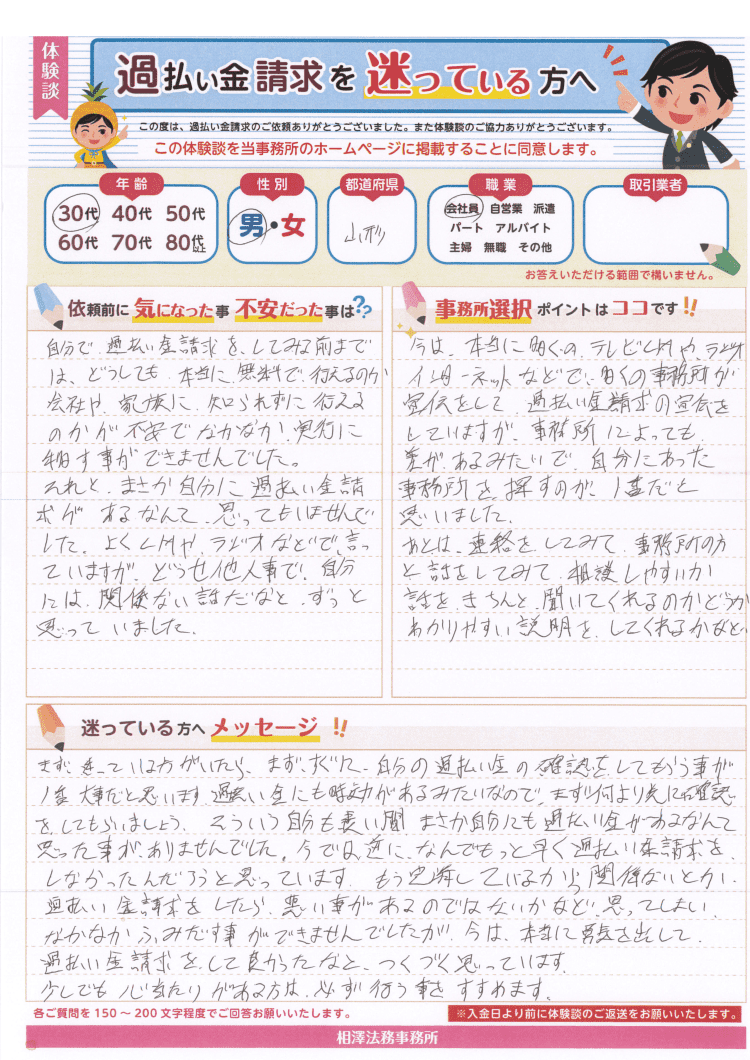 体験談
過払い金請求を迷っている方へ
この度は、過払い金請求のご依頼ありがとうございました。また体験談のご協力ありがとうございます。
この体験談を当事務所のホームページに掲載することに同意します。
年齢
30代 40代 50代
60代 70代 80代以上
性別
男・女
都道府県
山形
職業
会社員 自営業 派遣
パート アルバイト
主婦 無職 その他
取引業者
お答えいただける範囲で構いません。
依頼前に気になった事 不安だった事は??
自分で、過払い金請求を、してみる前まで
は、どうしても、本当に、無料で、行えるのか
会社や、家族に、知られずに行える
のかが不安でなかなか、実行に
移す事ができませんでした。
それと、まさか自分に過払い金請
求が、あるなんて、思ってもいませんで
した。よくCMや、ラジオなどで、言っ
ていますが、どうせ他人事で、自分
には、関係ない話だなと、ずっと
思っていました。
事務所選択ポイントはココです!!
今は、本当に多くの、テレビCMや、ラジオ
インターネットなどで、多くの事務所が
宣伝をして、過払い金請求の宣伝を
していますが、事務所によっても、
差があるみたいで、自分にあった
事務所を、探すのが、1番だと
思いました。
あとは、連絡を、してみて、事務所の方
と話をしてみて、相談しやすいか
話を、きちんと、聞いてくれるのかどうか
わかりやすい説明を、してくれるかなど、
迷っている方へメッセージ!!
まず、迷っている方がいたら、まず、すぐに、自分の過払い金の確認をしてもらう事が
1番大事だと思います。過払い金にも時効があるみたいなので、まずは何より先に確認
をしてもらいましょう。そういう自分も長い間まさか自分にも過払い金があるなんて
思った事がありませんでした。今では、逆に、なんでもっと早く過払い金請求を、
しなかったんだろうと思っています。もう完済しているから関係ないとか、
過払い金請求をしたら、悪い事があるのではないかなど、思ってしまい、
なかなかふみだす事ができませんでしたが、今は、本当に勇気を出して、
過払い金請求を、して良かったなと、つくづく思っています。
少しでも心当たりがある方は、必ず行う事をすすめます。
各ご質問を150〜200文字程度でご回答お願いいたします。
※入金日より前に体験談のご返送をお願いいたします。
相澤法務事務所